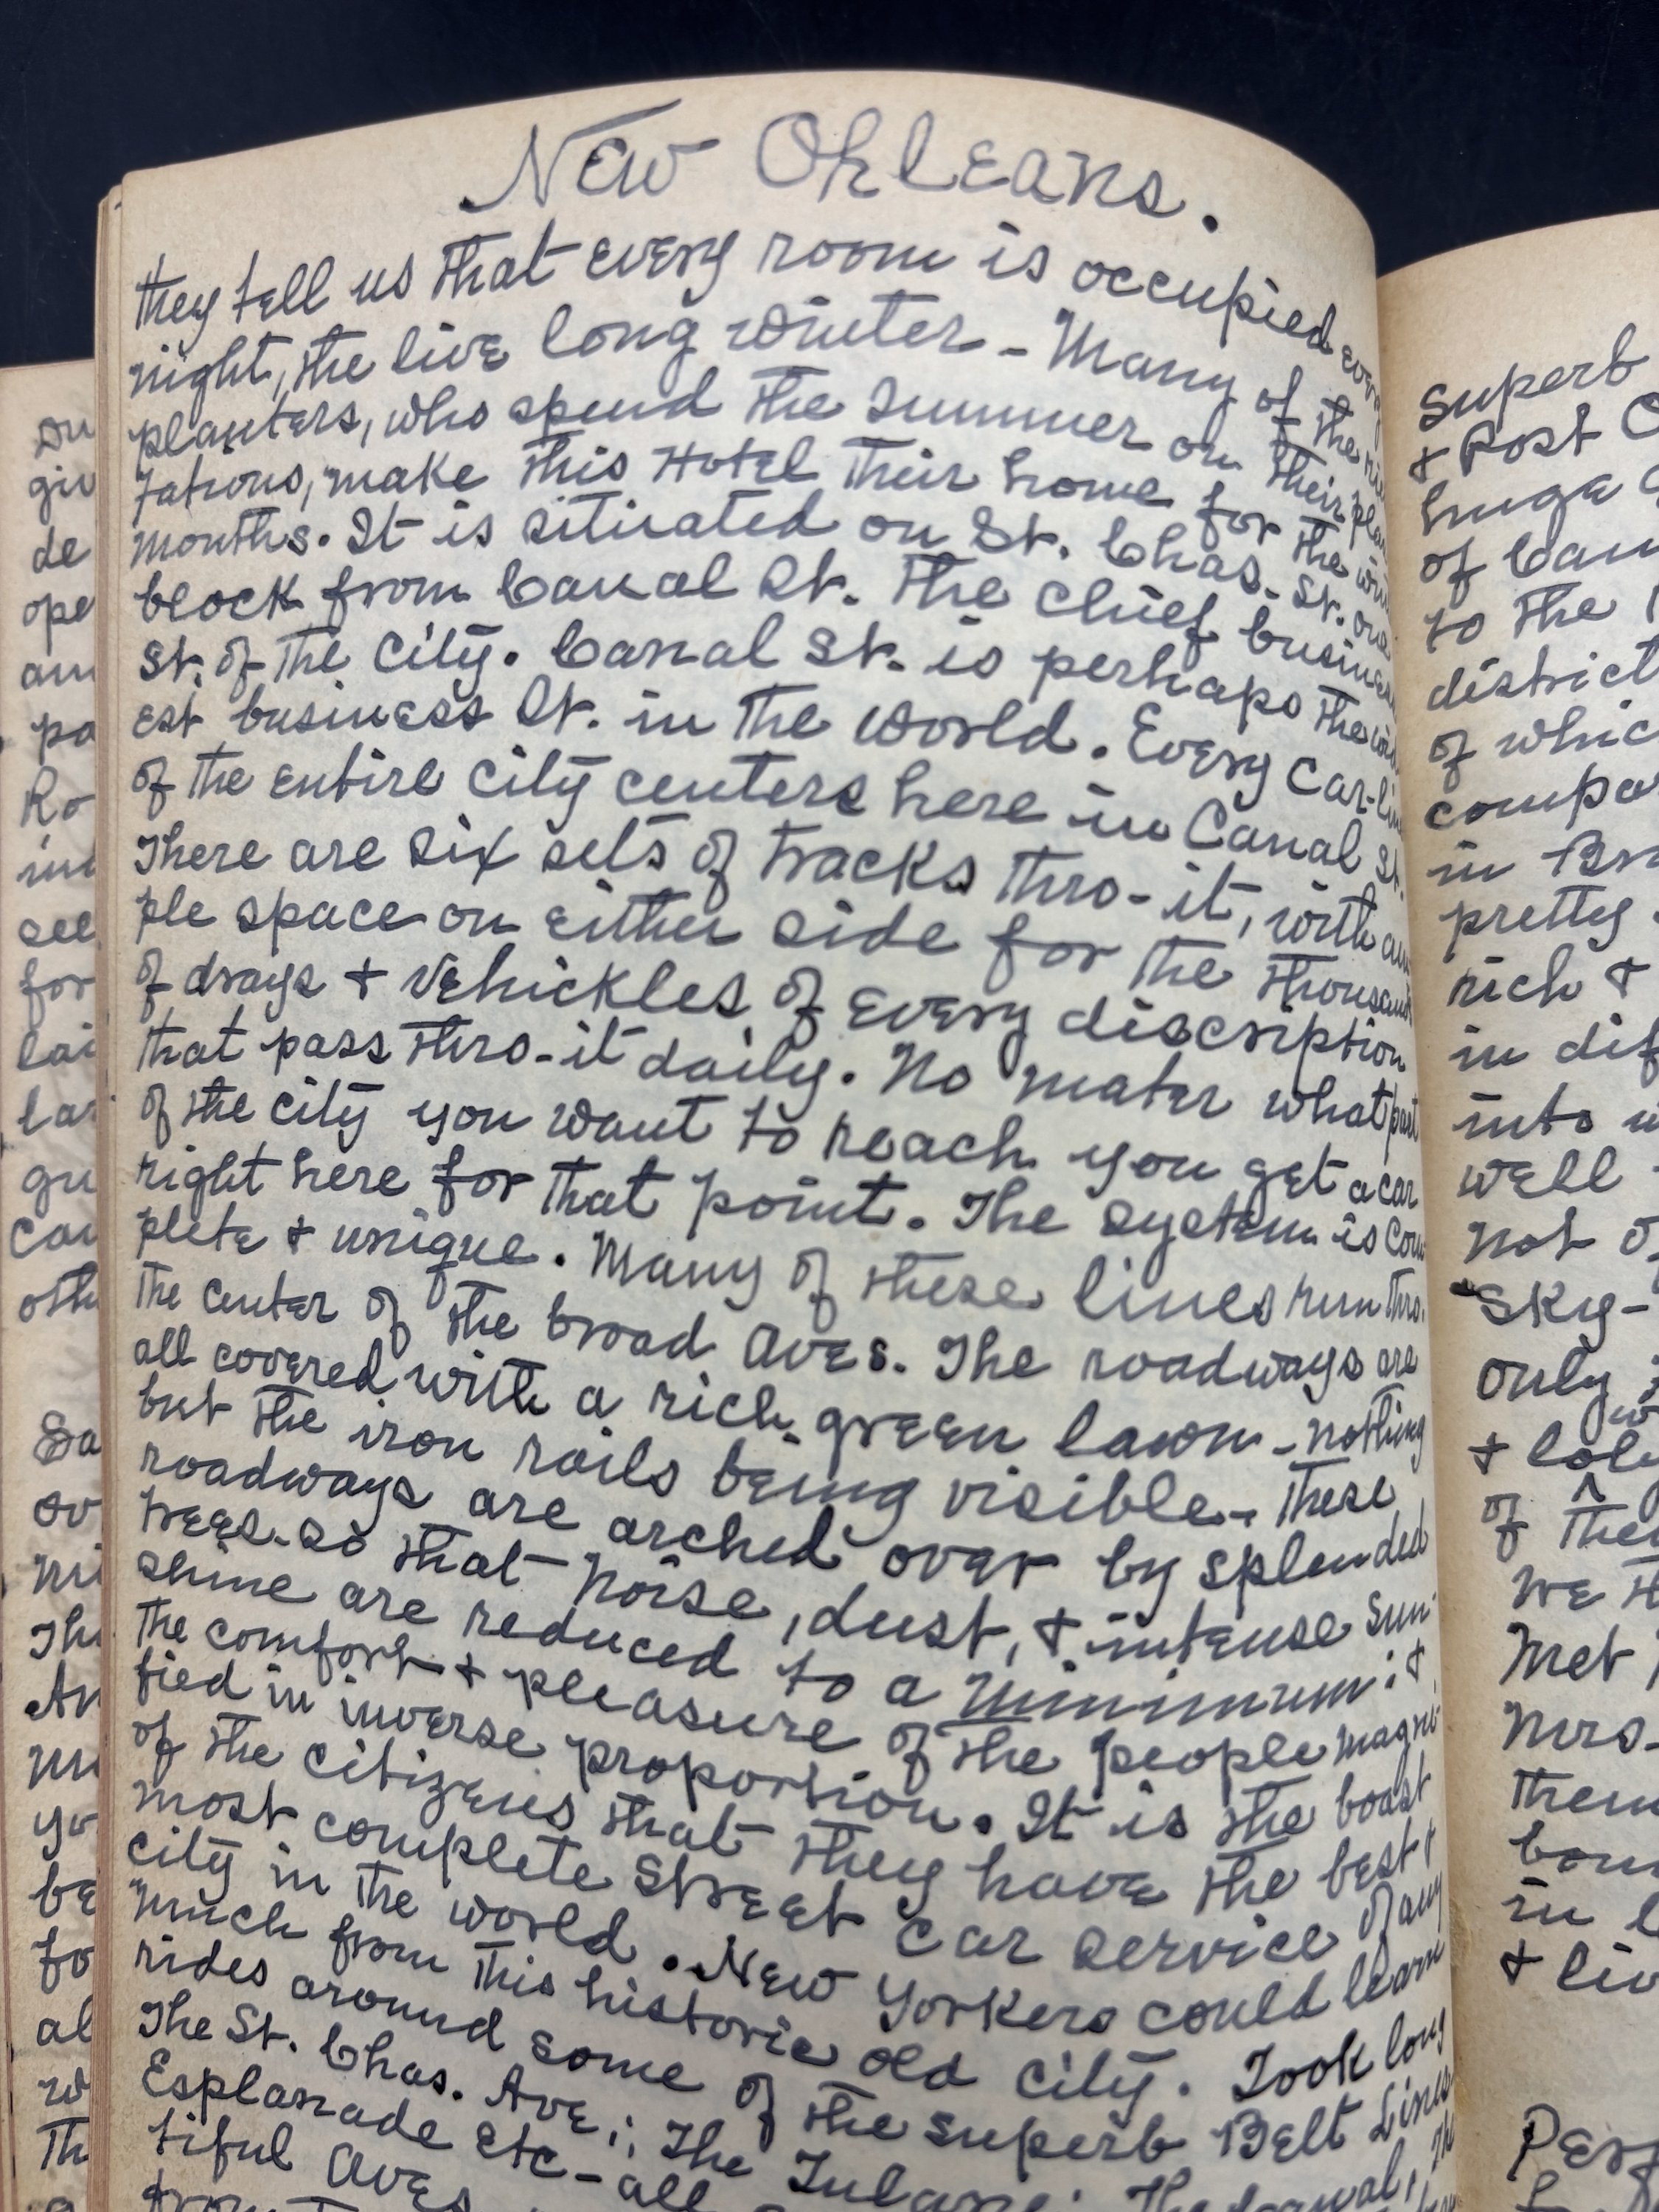 New Orleans.
they tell us that every room is occupied every
night, the live long winter - Many of the
planters, who spend the summer on their plan
tations, make this Hotel their home for the
months. It is situated on St. Chas. St. one
block from Canal St. The chief business
St. of the City. Canal St. is perhaps the
est business St. in the world. Every Car-line
of the entire City centers here in Canal St.
There are six sets of tracks thro-it, with am
ple space on either side for the thousands
of drays + vehickles of every discription
that pass thro-it daily. No mater what part
of the city you want to reach you get a car
right here for that point. The system is com
plete + unique. Many of these lines run thro.
the center of the broad aves. The roadways are
all covered with a rich green lawn - nothing
but the iron rails being visible - These
roadways are arched over by splended
trees - so that noise, dust, + intense sun-
shine are reduced to a minimum: +
the comfort + pleasure of the people magni-
fied in inverse proportion. It is the boast
of the citizens that they have the best +
most complete street car service of any
city in the world. New Yorkers could learn
much from this historic old city. Took long
rides around some of the superb Belt Lines
The St. Chas. Ave,; The Tulane;
Esplanade etc - all
tiful aves
from
Superb
+ Post
huge
of
to the
district
of which
in
pretty
rich +
in
into
well
not
"Sky-
only
+
of
we
Met
Mrs.
them
in
+